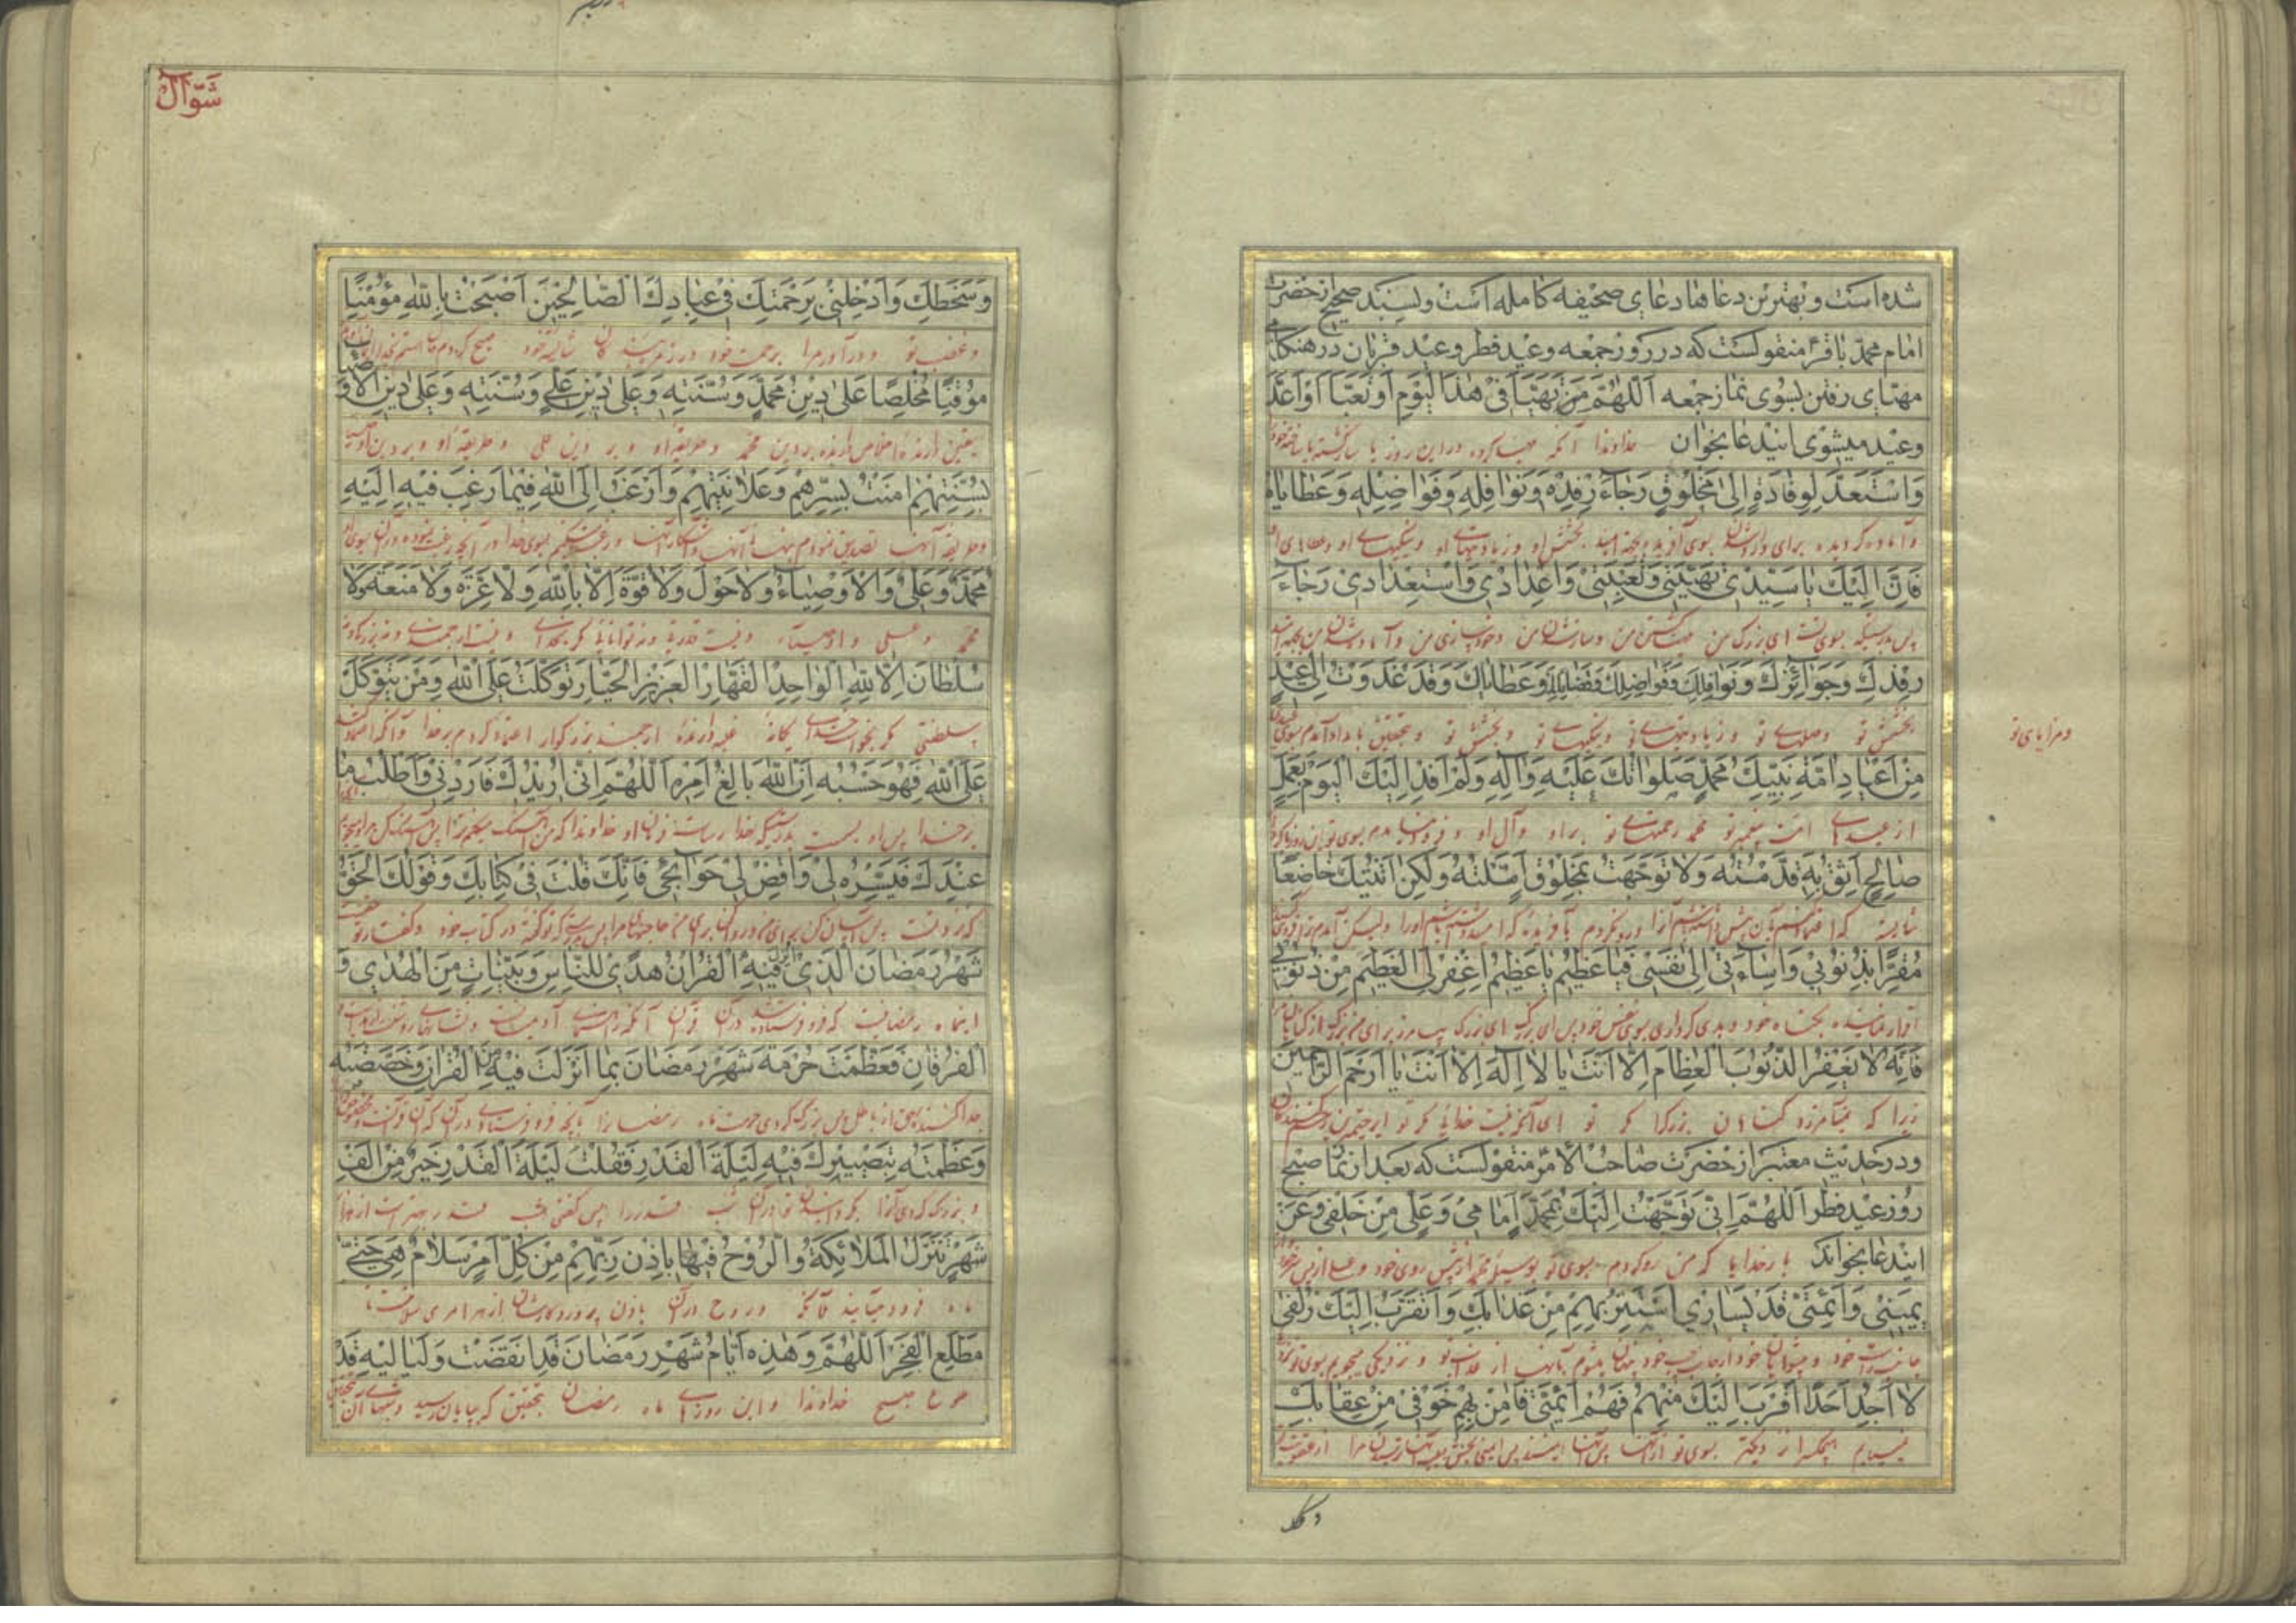 شده است و بهترین دعاها دعای صحیفه کامله است و بسند صحیح از حضرت
امام محمد باقر منقولست که در روز جمعه و عید فطر و عید قربان در هنکامی
مهیای رفتن بسوی نماز جمعه اَللّٰهُمَّ مَنْ تَهَيَّأَ فِي هٰذَا الْيَوْمِ اَوْ تَعَبَّأَ اَوْ اَعَدَّ
و عید میشوی ایندعا بخوان خداوندا آنکه مهیا کرده در این روز یا
وَاسْتَعَدَّ لِوِفَادَةٍ اِلىٰ مَخْلُوقٍ رَجَاءَ رِفْدِهِ وَنَوَافِلِهِ وَفَوَاضِلِهِ وَعَطَايَاهُ
و آماده کردیده برای بسوی آفریده بجهة امید بخشش او و زیادتیهای او و نیکیهای او و عطاهای او
فَاِنَّ اِلَيْكَ يَا سَيِّدِي تَهْيِئَتِي وَتَعْبِئَتِي وَاِعْدَادِي وَاسْتِعْدَادِي رَجَاءَ
پس بدرستیکه بسوی تست ای بزرک من مهیا کشتن من و من و من و آماده شدن من بجهة امید
رِفْدِكَ وَجَوَائِزِكَ وَنَوَافِلِكَ وَفَوَاضِلِكَ وَفَضَائِلِكَ وَعَطَايَاكَ وَقَدْ غَدَوْتُ اِلىٰ عِيدٍ
بخشش تو و صلهای تو و زیادتیهای تو و نیکیهای تو و بخشش تو و بتحقیق بامداد آمدم بسوی عیدی
و مزایای تو
مِنْ اَعْيَادِ اُمَّةِ نَبِيِّكَ مُحَمَّدٍ صَلَوَاتُكَ عَلَيْهِ وَآلِهِ وَلَمْ اَفِدْ اِلَيْكَ الْيَوْمَ بِعَمَلٍ
از عیدهای امت پیغمبر تو محمد رحمتهای تو بر او و آل او و فرود نیامدم بسوی تو این روز
صَالِحٍ اَثِقُ بِهِ قَدَّمْتُهُ وَلَا تَوَجَّهْتُ بِمَخْلُوقٍ اَمَّلْتُهُ وَلٰكِنْ اَتَيْتُكَ خَاضِعًا
شایسته که بآن پیش آنرا و رو نکردم بآفریده که اورا ولیکن آمدم ترا
مُقِرًّا بِذُنُوبِي وَاِسَاءَتِي اِلىٰ نَفْسِي فَيَا عَظِيمُ يَا عَظِيمُ اغْفِرْ لِيَ الْعَظِيمَ مِنْ ذُنُوبِي
اقرار نماینده بکناه خود و بدی کرداری بسوی نفس خود پس ای بزرک ای بزرک بیامرز برای من بزرک از کناهان مرا
فَاِنَّهُ لَا يَغْفِرُ الذُّنُوبَ الْعِظَامَ اِلَّا اَنْتَ يَا لَا اِلٰهَ اِلَّا اَنْتَ يَا اَرْحَمَ الرَّاحِمِينَ
زیرا که نمیآمرزد کناهان بزرک را مکر تو ای آنکه نیست خدایی مکر تو ای رحیمترین رحم کنندکان
و در حدیث معتبر از حضرت صاحب الامر منقولست که بعد از نماز صبح
روز عید فطر اَللّٰهُمَّ اِنِّي تَوَجَّهْتُ اِلَيْكَ بِمُحَمَّدٍ اَمَامِي وَعَلِيٍّ مِنْ خَلْفِي وَعَنْ
ایندعا بخواند بار خدایا که من رو کردم بسوی تو بوسیله محمد از پیش روی خود و علی از پس سر خود
يَمِينِي وَاَئِمَّتِي قَدْ يَسَارِي اَسْتَتِرُ بِهِمْ مِنْ عَذَابِكَ وَاَتَقَرَّبُ اِلَيْكَ زُلْفىٰ
جانب راست خود و پیشوایان خود از جانب چپ خود پنهان میشوم بآنها از عذاب تو و نزدیکی میجویم بسوی تو
لَا اَجِدُ اَحَدًا اَقْرَبَ اِلَيْكَ مِنْهُمْ فَهُمْ اَئِمَّتِي فَآمِنْ بِهِمْ خَوْفِي مِنْ عِقَابِكَ
نمییابم هیچکس را نزدیکتر بسوی تو از آنها پس آنها پس ایمنی بخش بآنها ترسیدن مرا از عقوبت
شوّال
وَسَخَطِكَ وَاَدْخِلْنِي بِرَحْمَتِكَ فِي عِبَادِكَ الصَّالِحِينَ اَصْبَحْتُ بِاللّٰهِ مُؤْمِنًا
و غضب تو و درآور مرا برحمت خود در زمره بندکان شایسته خود صبح کردم
مُوقِنًا مُخْلِصًا عَلىٰ دِينِ مُحَمَّدٍ وَسُنَّتِهِ وَعَلىٰ دِينِ عَلِيٍّ وَسُنَّتِهِ وَعَلىٰ دِينِ الْاَوْصِيَاءِ
یقین دارنده اخلاص دارنده بر دین محمد و طریقه او و بر دین علی و طریقه او و بر دین اوصیا
بِسُنَّتِهِمْ اٰمَنْتُ بِسِرِّهِمْ وَعَلَانِيَتِهِمْ وَاَرْغَبُ اِلَى اللّٰهِ فِيمَا رَغِبَ فِيهِ اِلَيْهِ
و طریقه آنها تصدیق نمودم بنهان آنها و آشکار آنها و رغبت میکنم بسوی خدا در آنچه رغبت نموده در آن بسوی او
مُحَمَّدٌ وَعَلِيٌّ وَالْاَوْصِيَاءُ وَلَا حَوْلَ وَلَا قُوَّةَ اِلَّا بِاللّٰهِ وَلَا عِزَّةَ وَلَا مَنَعَةَ وَلَا
محمد و علی و اوصیاء و نیست قدرتی و نه توانایی مکر بخدای و نیست ارجمندی و نه
سُلْطَانَ اِلَّا لِلّٰهِ الْوَاحِدِ الْقَهَّارِ الْعَزِيزِ الْجَبَّارِ تَوَكَّلْتُ عَلَى اللّٰهِ وَمَنْ يَتَوَكَّلْ
سلطنتی مکر خدای یکانه غلبه دارنده ارجمند بزرکوار اعتماد کردم بر خدا و آنکه اعتماد کند
عَلَى اللّٰهِ فَهُوَ حَسْبُهُ اِنَّ اللّٰهَ بَالِغُ اَمْرِهِ اَللّٰهُمَّ اِنِّي اُرِيدُكَ فَارِدْنِي وَاَطْلُبُ مَا
بر خدا پس او بدرستیکه خدا فرمان او خداوندا که من
عِنْدَكَ فَيَسِّرْهُ لِي وَاقْضِ لِي حَوَائِجِي فَاِنَّكَ قُلْتَ فِي كِتَابِكَ وَقَوْلُكَ الْحَقُّ
که نزد تست پس آسان کن برای من و روا کن برای من حاجتهای مرا پس بدرستیکه تو کفته در کتاب خود و کفتار تو حقست
شَهْرُ رَمَضَانَ الَّذِي اُنْزِلَ فِيهِ الْقُرْاٰنُ هُدًى لِلنَّاسِ وَبَيِّنَاتٍ مِنَ الْهُدىٰ وَ
ماه رمضانیست که فرو فرستاده شد در آن قرآن آنکه راهنمای آدمیانست و نشانهای روشن
الْفُرْقَانِ فَعَظَّمْتَ حُرْمَةَ شَهْرِ رَمَضَانَ بِمَا اَنْزَلْتَ فِيهِ مِنَ الْقُرْاٰنِ وَخَصَصْتَهُ
جدا کننده حق از باطل پس بزرک کردی حرمت ماه رمضان را بآنچه فرو فرستادی در آن که آن قرآنست و مخصوص
وَعَظَّمْتَهُ بِتَصْيِيرِكَ فِيهِ لَيْلَةَ الْقَدْرِ فَقُلْتَ لَيْلَةُ الْقَدْرِ خَيْرٌ مِنْ اَلْفِ
و بزرک کردی آنرا تو در آن شب قدر را پس کفتی شب قدر بهتر است از هزار
شَهْرٍ تَنَزَّلُ الْمَلَائِكَةُ وَالرُّوحُ فِيهَا بِاِذْنِ رَبِّهِمْ مِنْ كُلِّ اَمْرٍ سَلَامٌ هِيَ حَتّىٰ
ماه فرود میآیند ملائکه و روح در آن باذن پروردکارشان از هر امری سلامت تا
مَطْلَعِ الْفَجْرِ اَللّٰهُمَّ وَهٰذِهِ اَيَّامُ شَهْرِ رَمَضَانَ قَدِ انْقَضَتْ وَلَيَالِيهِ قَدْ
طلوع صبح خداوندا و این روزهای ماه رمضان بتحقیق که بپایان رسید و شبهای آن بتحقیق